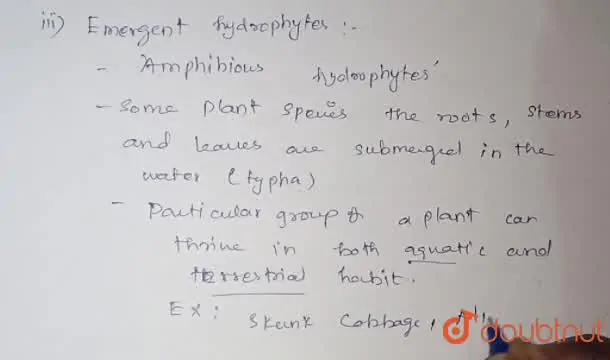 iii) Emergent hydrophytes :-
- Amphibious hydrophytes'
- Some plant species the roots, stems
and leaves are submerged in the
water (typha)
- Particular group of a plant can
thrive in both aquatic and
terrestrial habit.
Ex: Skunk Cabbage,
doubtnut